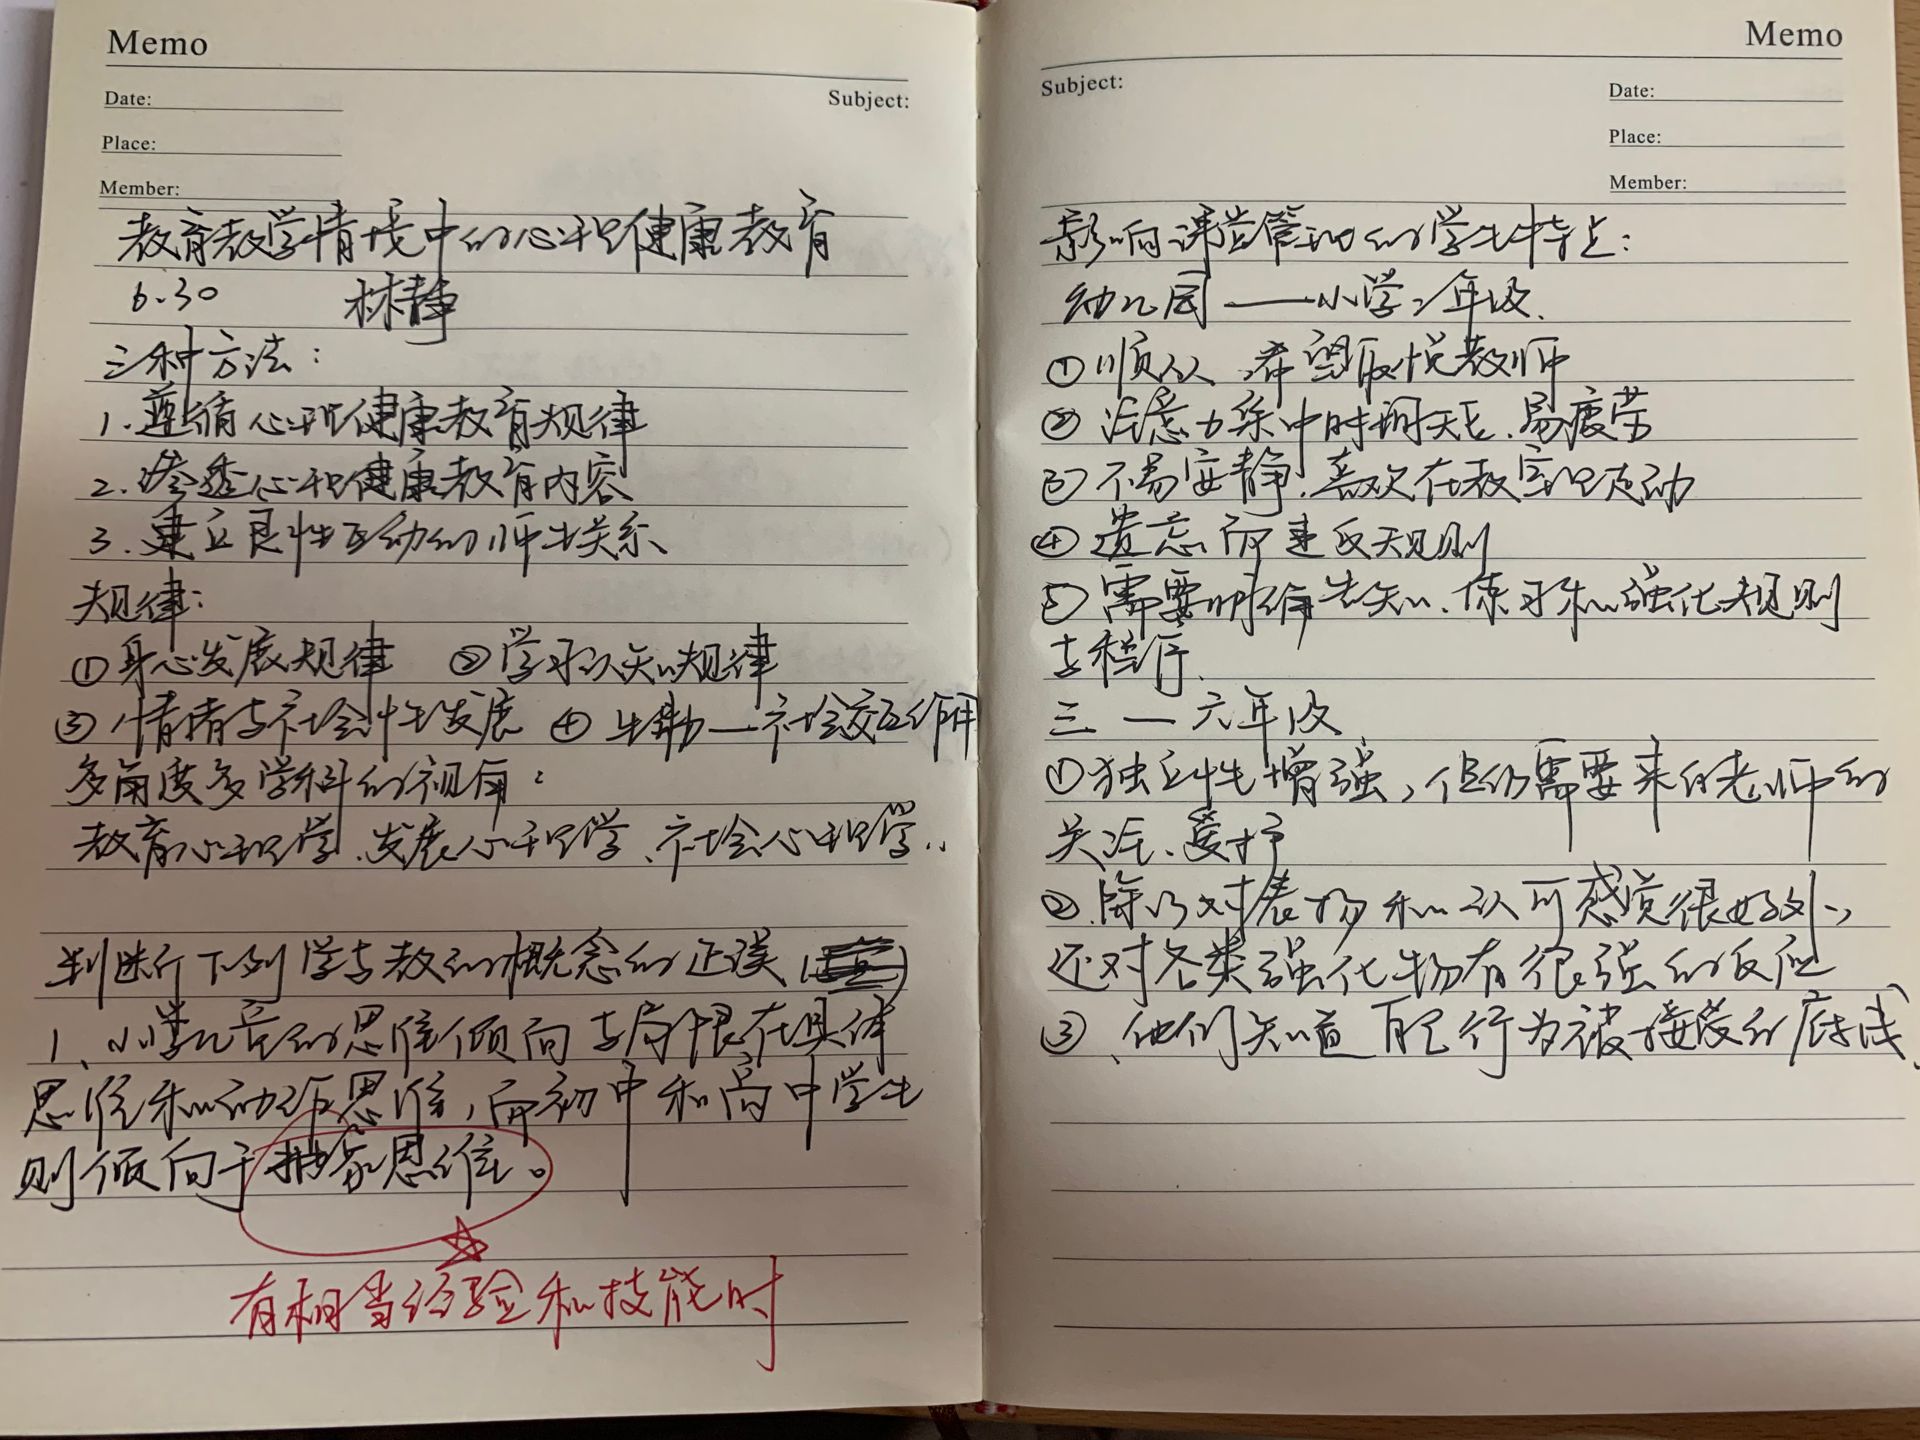 Memo
Date:
Subject:
Place:
Member:
教育教学情境中的心理健康教育
6.30 林静
三种方法：
1.遵循心理健康教育规律
2.渗透心理健康教育内容
3.建立良性互动的师生关系
规律：
①身心发展规律 ②学习认知规律
③情绪与社会性发展 ④生物—社会交互作用
多角度多学科的视角：
教育心理学、发展心理学、社会心理学..
判断下列学与教的概念的正误
1、小学儿童的思维倾向与局限在具体
思维和动作思维，而初中和高中学生
则倾向于抽象思维。
有相当经验和技能时
Memo
Subject:
Date:
Place:
Member:
影响课堂管理的学生特点：
幼儿园——小学二年级.
①顺从、希望取悦教师
②注意力集中时间短、易疲劳
③不易安静、喜欢在教室里走动
④遗忘而违反规则
⑤需要明确告知、练习和强化规则
与程序.
三—六年级
①独立性增强，但仍需要来自老师的
关注、爱护
②.除了对表扬和认可感觉很好外，
还对各类强化物有很强的反应
③、他们知道自己行为被接受的底线.